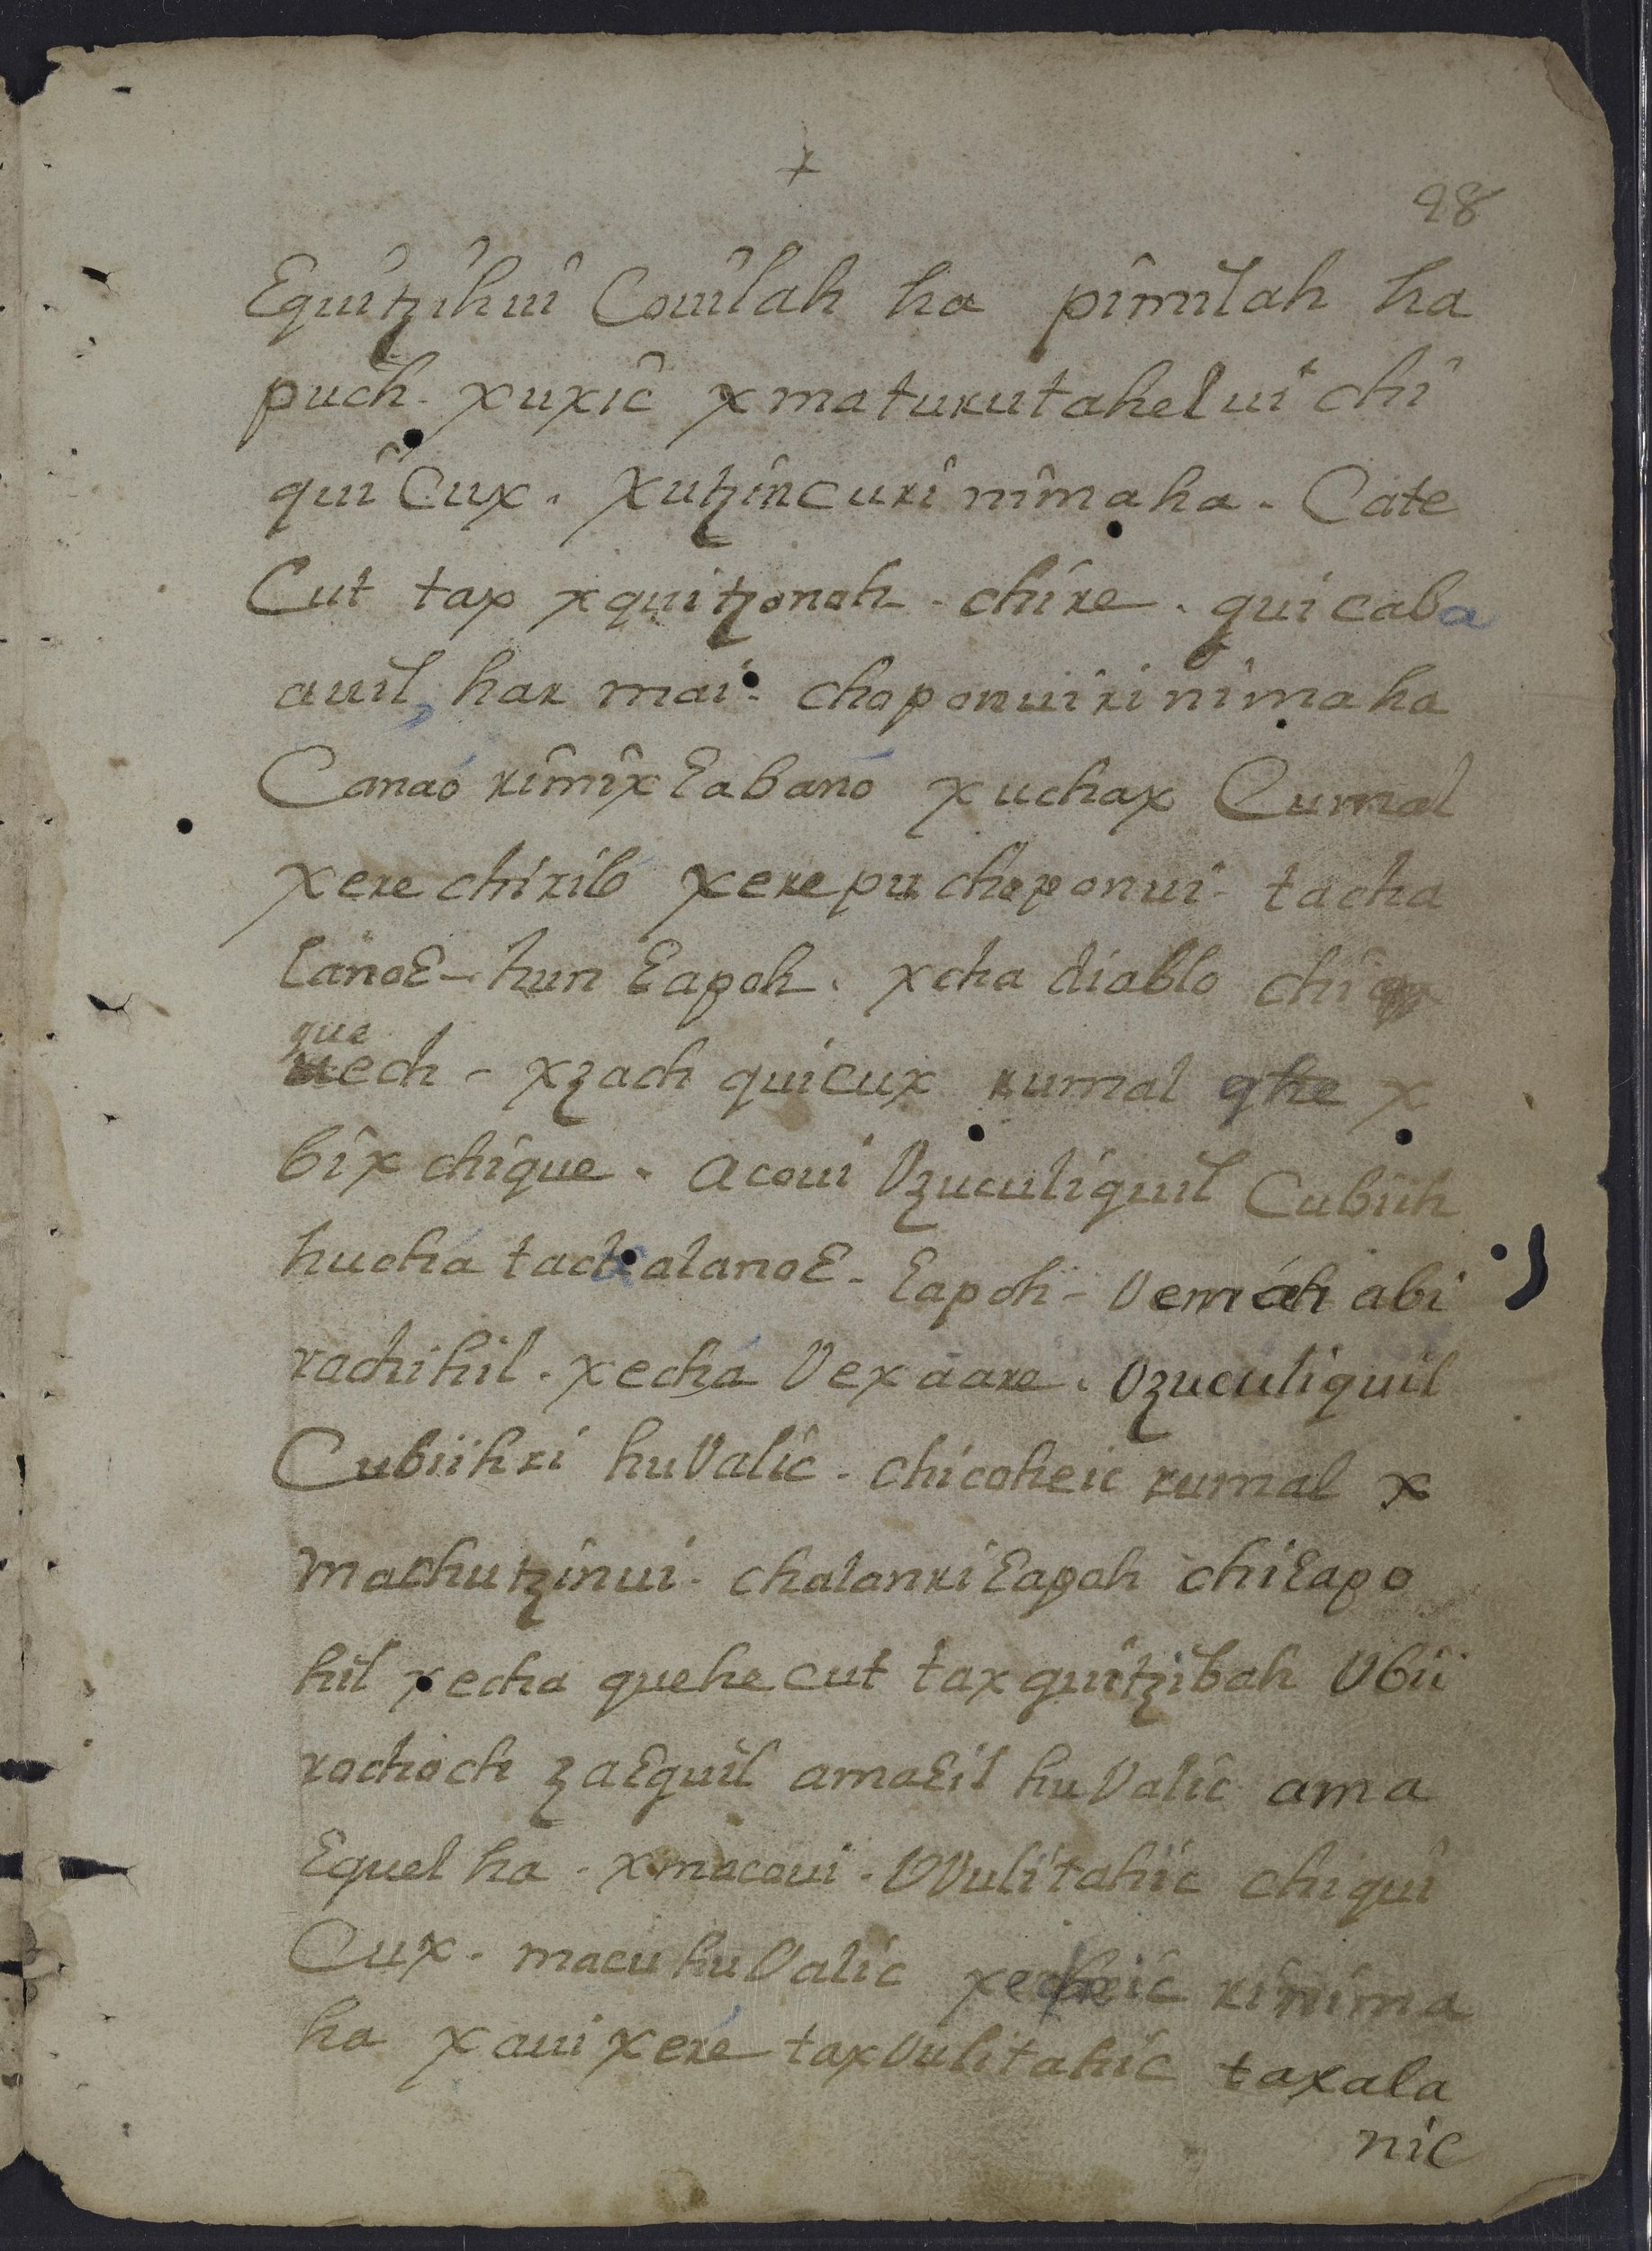 +
28
Equitzihui Couilah ha pimilah ha
puch - xuxic xmaturutahelui chi
qui Cux . xutzincuri nimaha - Cate
Cut tax xquitzonoh - chire . qui caba
auil, har mai - choponuiri nimaha
Canaó rimixɛabanó xuchax Cumal
xere chirib xere pu choponui - tacha
lanoɛ - hun ɛapoh . xcha diablo chi
que
ech - xzach quicux rumal qhe x
bix chique - acoui Vzuculiquil Cubiih
huchá tachalanoɛ - ɛapoh - Vemáh abi
rachihil . xechá Vex aare . Vzuculiquil
Cubiihri huValic - chicoheic rumal x
machutzinui - chalanri ɛapoh chiɛapo
hil xecha quehe cut taxquitzibah Vbii
rochoch zaɛquil amaɛil huValic ama
ɛquel ha - xmacaui - VVulitahic chiqui
Cux - macu huValic xe ic ri nima
ha xaui xere taxVulitahic taxala
nic